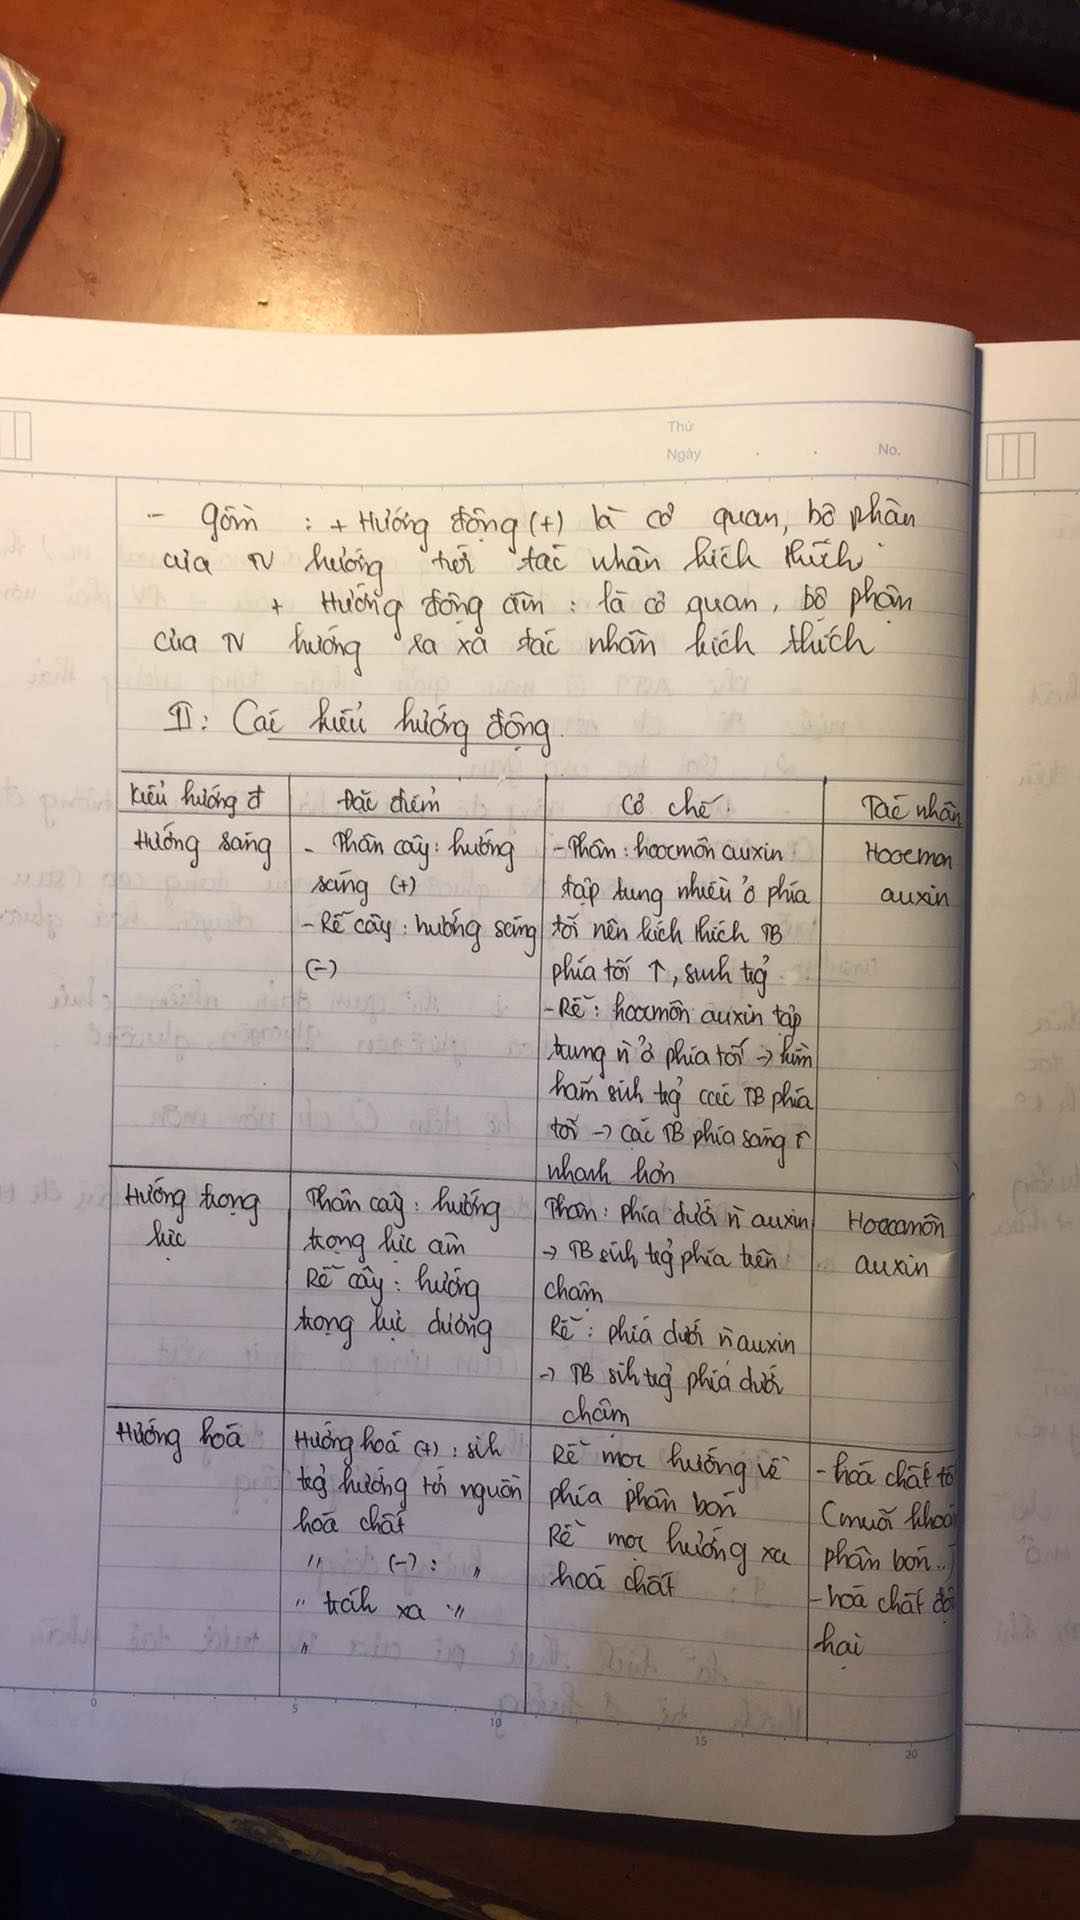 Thứ
Ngày . . No.
- Gồm : + Hướng động (+) là cơ quan, bộ phận
của TV hướng tới tác nhân kích thích
+ Hướng động âm : là cơ quan, bộ phận
của TV hướng ra xa tác nhân kích thích
II: Các kiểu hướng động.
Kiểu hướng đ
Đặc điểm
Cơ chế
Tác nhân
Hướng sáng
- Thân cây: hướng
sáng (+)
- Rễ cây: hướng sáng
(-)
- Thân: hoocmôn auxin
tập tung nhiều ở phía
tối nên kích thích TB
phía tối ↑, sinh trg̉
- Rễ: hoocmôn auxin tập
trung n̄ ở phía tối → kìm
hãm sinh trg̉ các TB phía
tối → các TB phía sáng ↑
nhanh hơn
Hoocmon
auxin
Hướng trọng
lực
Thân cây: hướng
trọng lực âm
Rễ cây: hướng
trọng lực dương
Thân: phía dưới n̄ auxin
→ TB sinh trg̉ phía trên
chậm
Rễ: phía dưới n̄ auxin
→ TB sih trg̉ phía dưới
chậm
Hoocmôn
auxin
Hướng hoá
Hướng hoá (+): sih
trg̉ hướng tới nguồn
hoá chất
" (-): "
" tráh xa "
"
Rễ mọc hướng về
phía phân bón
Rễ mọc hướng xa
hoá chất
- hoá chất
(muối
phân bón...)
- hoá chất
hại
0 5 10 15 20